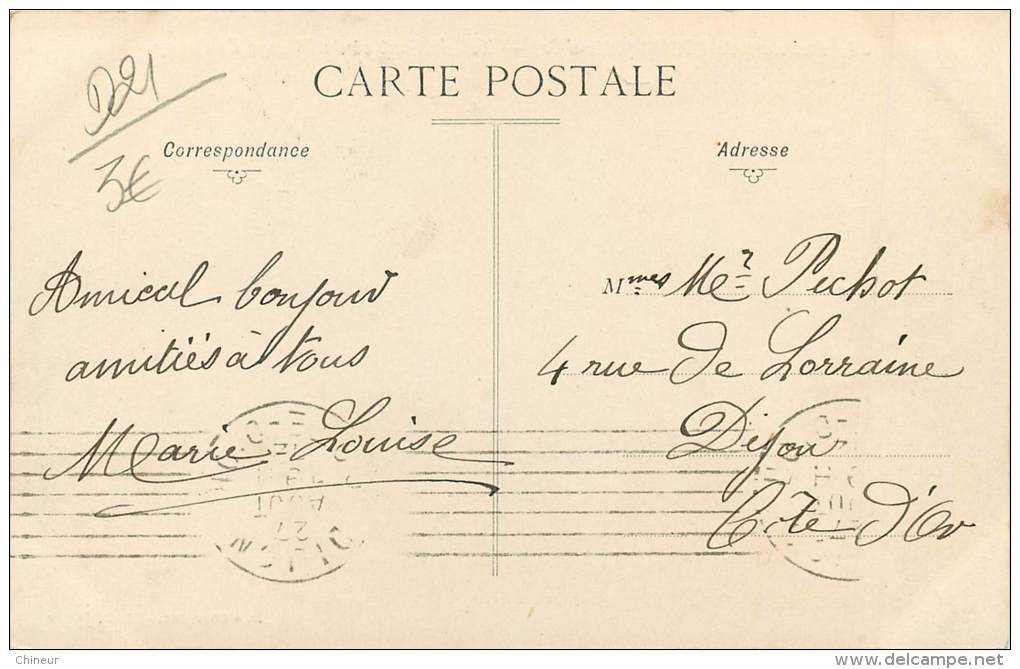 CARTE POSTALE
D21
3€
Correspondance
Amical bonjour
amitiés à tous
Marie Louise
Adresse
Mmes Mer Pichot
4 rue de Lorraine
Dijon
Côte d'Or
AOUT
27
DIJON
Chineur
www.delcampe.net